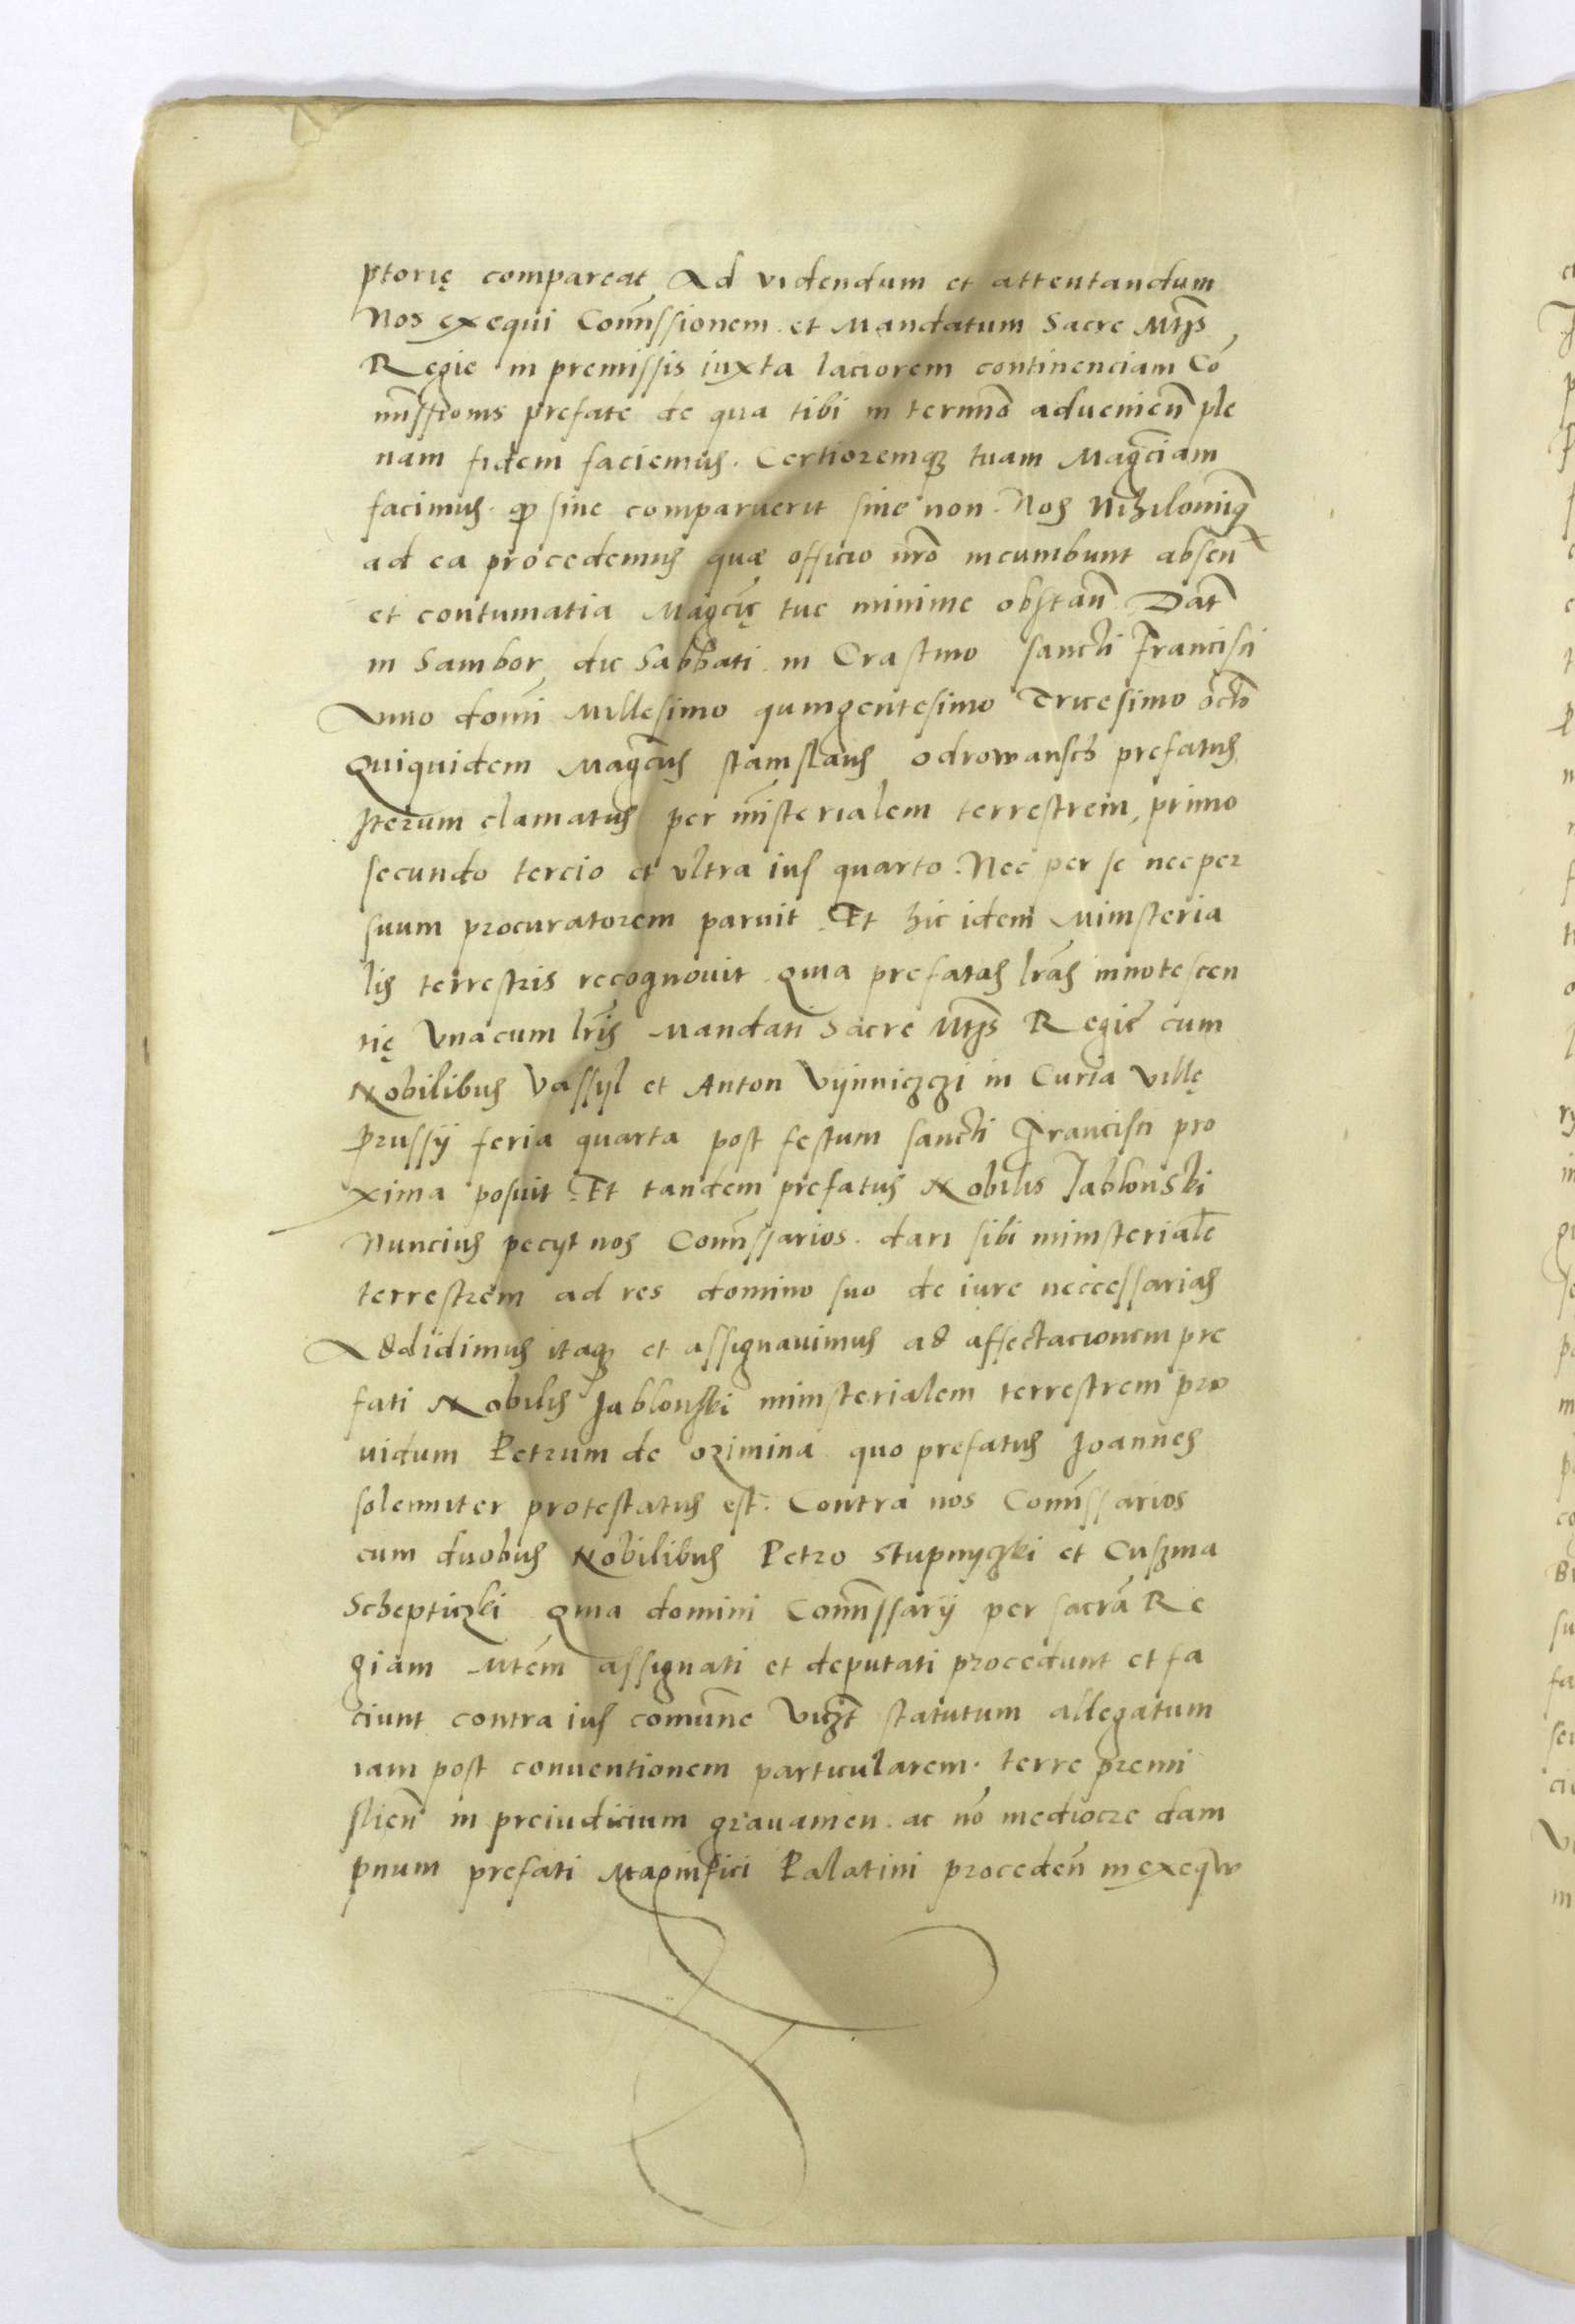 ptorię compareat, Ad videndum et attentandum
Nos exequi Com̄ssionem et Mandatum Sacre Mtis̄
Regie in premissis iuxta laciorem continenciam Co
mīssionis prefate de qua tibi in termīo advenien̄ ple
nam fidem faciemus. Certioremqȝ tuam Maḡciam
facimus. ꝙ sive comparuerit sive non. Nos Nihilomiq̄
ad ea procedemus quæ officio nr̄o incumbunt absen̄
et contumatia Magc̄ię tue minime obstan̄. Dat̄
in Sambor, die Sabbati in Crastino sancti Francisci
Anno domī Millesimo quingentesimo Tricesimo octō
Quiquidem Magc̄us stanislaus odrowansch prefatus,
Iterum clamatus per mīsterialem terrestrem, primo
secundo tercio et vltra ius quarto. Nec per se nec per
suum procuratorem paruit. Et hic idem Ministeria
lis terrestris recognovit quia prefatas lr̄as innotescen
tię vnacum lr̄is Mandati Sacre Mtis̄ Regie cum
Nobilibus Vassyl et Anton Vynniczczi in Curia villę
Prussij feria quarta post festum sancti Francisci pro
xima posuit. Et tandem prefatus Nobilis Jablonski
Nuncius pecyt nos Com̄ssarios. dari sibi ministeriale̅
terrestrem ad res domino suo de iure neccessarias
Addidimus itaqȝ et assignavimus ad affectacionem pre
fati Nobilis Jablonski ministerialem terrestrem pro
uidum Petrum de ozimina quo prefatus Joannes
solenniter protestatus est. Contra nos Com̄ssarios
cum duobus Nobilibus Petro Stupnyczki et Cuszma
Schepticzki quia domini Com̄ssarij per sacrā Re
giam Mtēm assignati et deputati procedunt et fa
ciunt contra ius comūne viczt̄ statutum allegatum
iam post conventionem particularem. terre premi
slien̄ in preiudicium gravamen. ac nō mediocre dam
pnum prefati Magnifici Palatini proceden̄ in exeqw